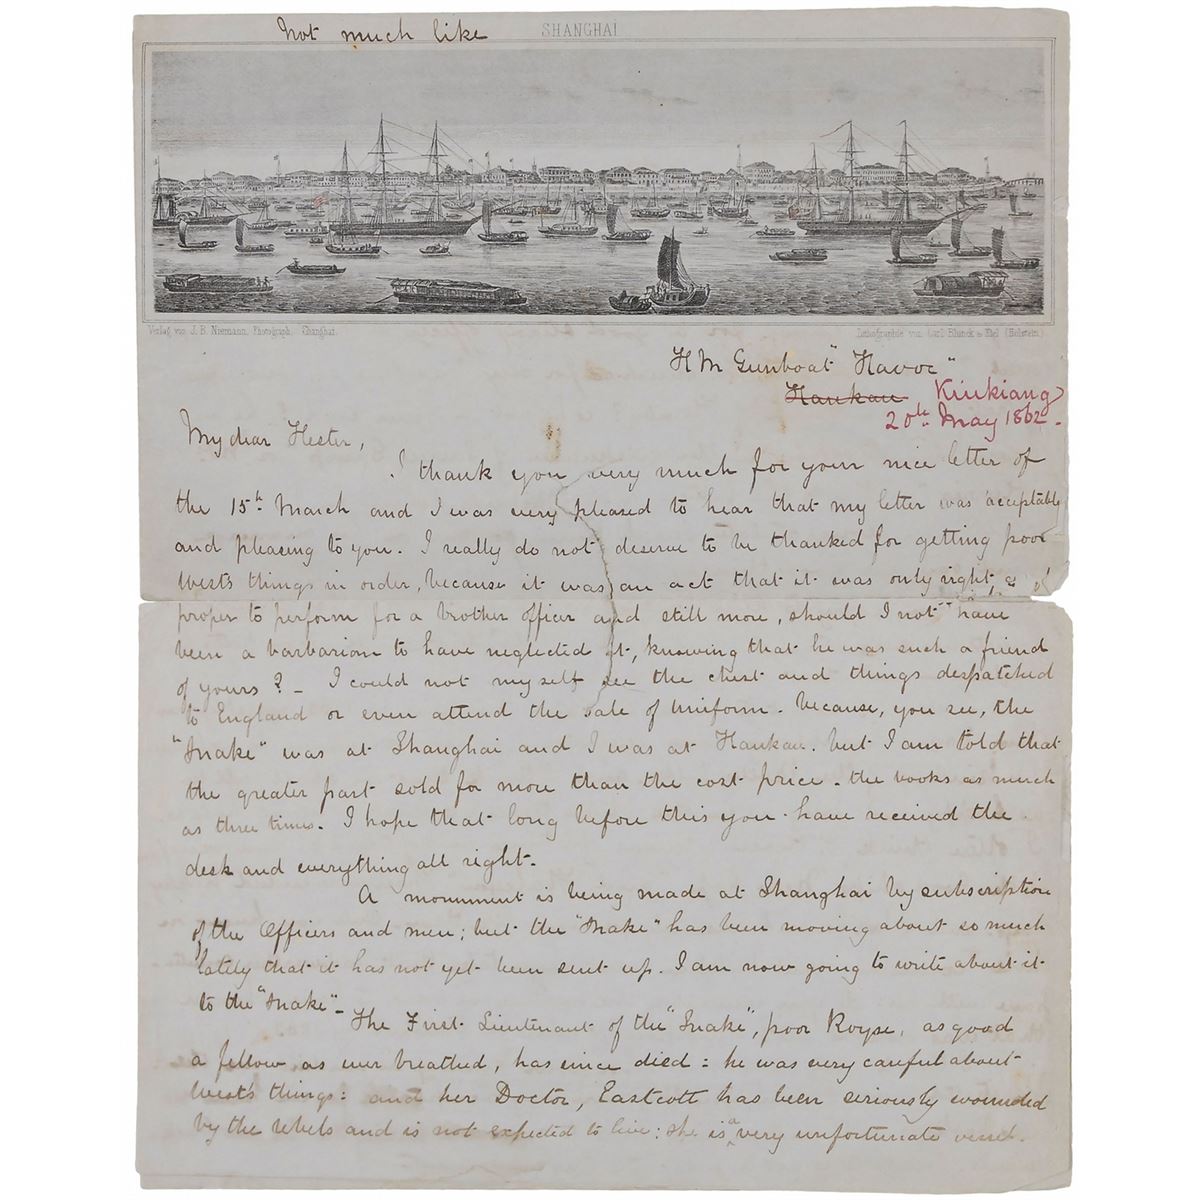 Not much like SHANGHAI
Verlag von J. B. Niemann, Photograph. Shanghai.
Lithographie von Carl Blunck in Kiel (Holstein.)
H M Gunboat "Havoc"
Hankau Kiukiang
20th May 1862.
My dear Hester,
I thank you very much for your nice letter of
the 15th March and I was very pleased to hear that my letter was acceptable
and pleasing to you. I really do not deserve to be thanked for getting poor
West's things in order, because it was an act that it was only right
proper to perform for a brother officer and still more, should I not have
been a barbarian to have neglected it, knowing that he was such a friend
of yours? - I could not myself see the chest and things despatched
to England or even attend the sale of uniform. because, you see, the
"Snake" was at Shanghai and I was at Hankau. but I am told that
the greater part sold for more than the cost price. the books as much
as three times. I hope that long before this you have received the
desk and everything all right.
A monument is being made at Shanghai by subscription
of the Officers and men; but the "Snake" has been moving about so much
lately that it has not yet been sent up. I am now going to write about it
to the "Snake" -
The First Lieutenant of the "Snake", poor Royse, as good
a fellow as ever breathed, has since died: he was very careful about
West's things: and her Doctor, Eastcott has been seriously wounded
by the rebels and is not expected to live: she is a very unfortunate vessel.